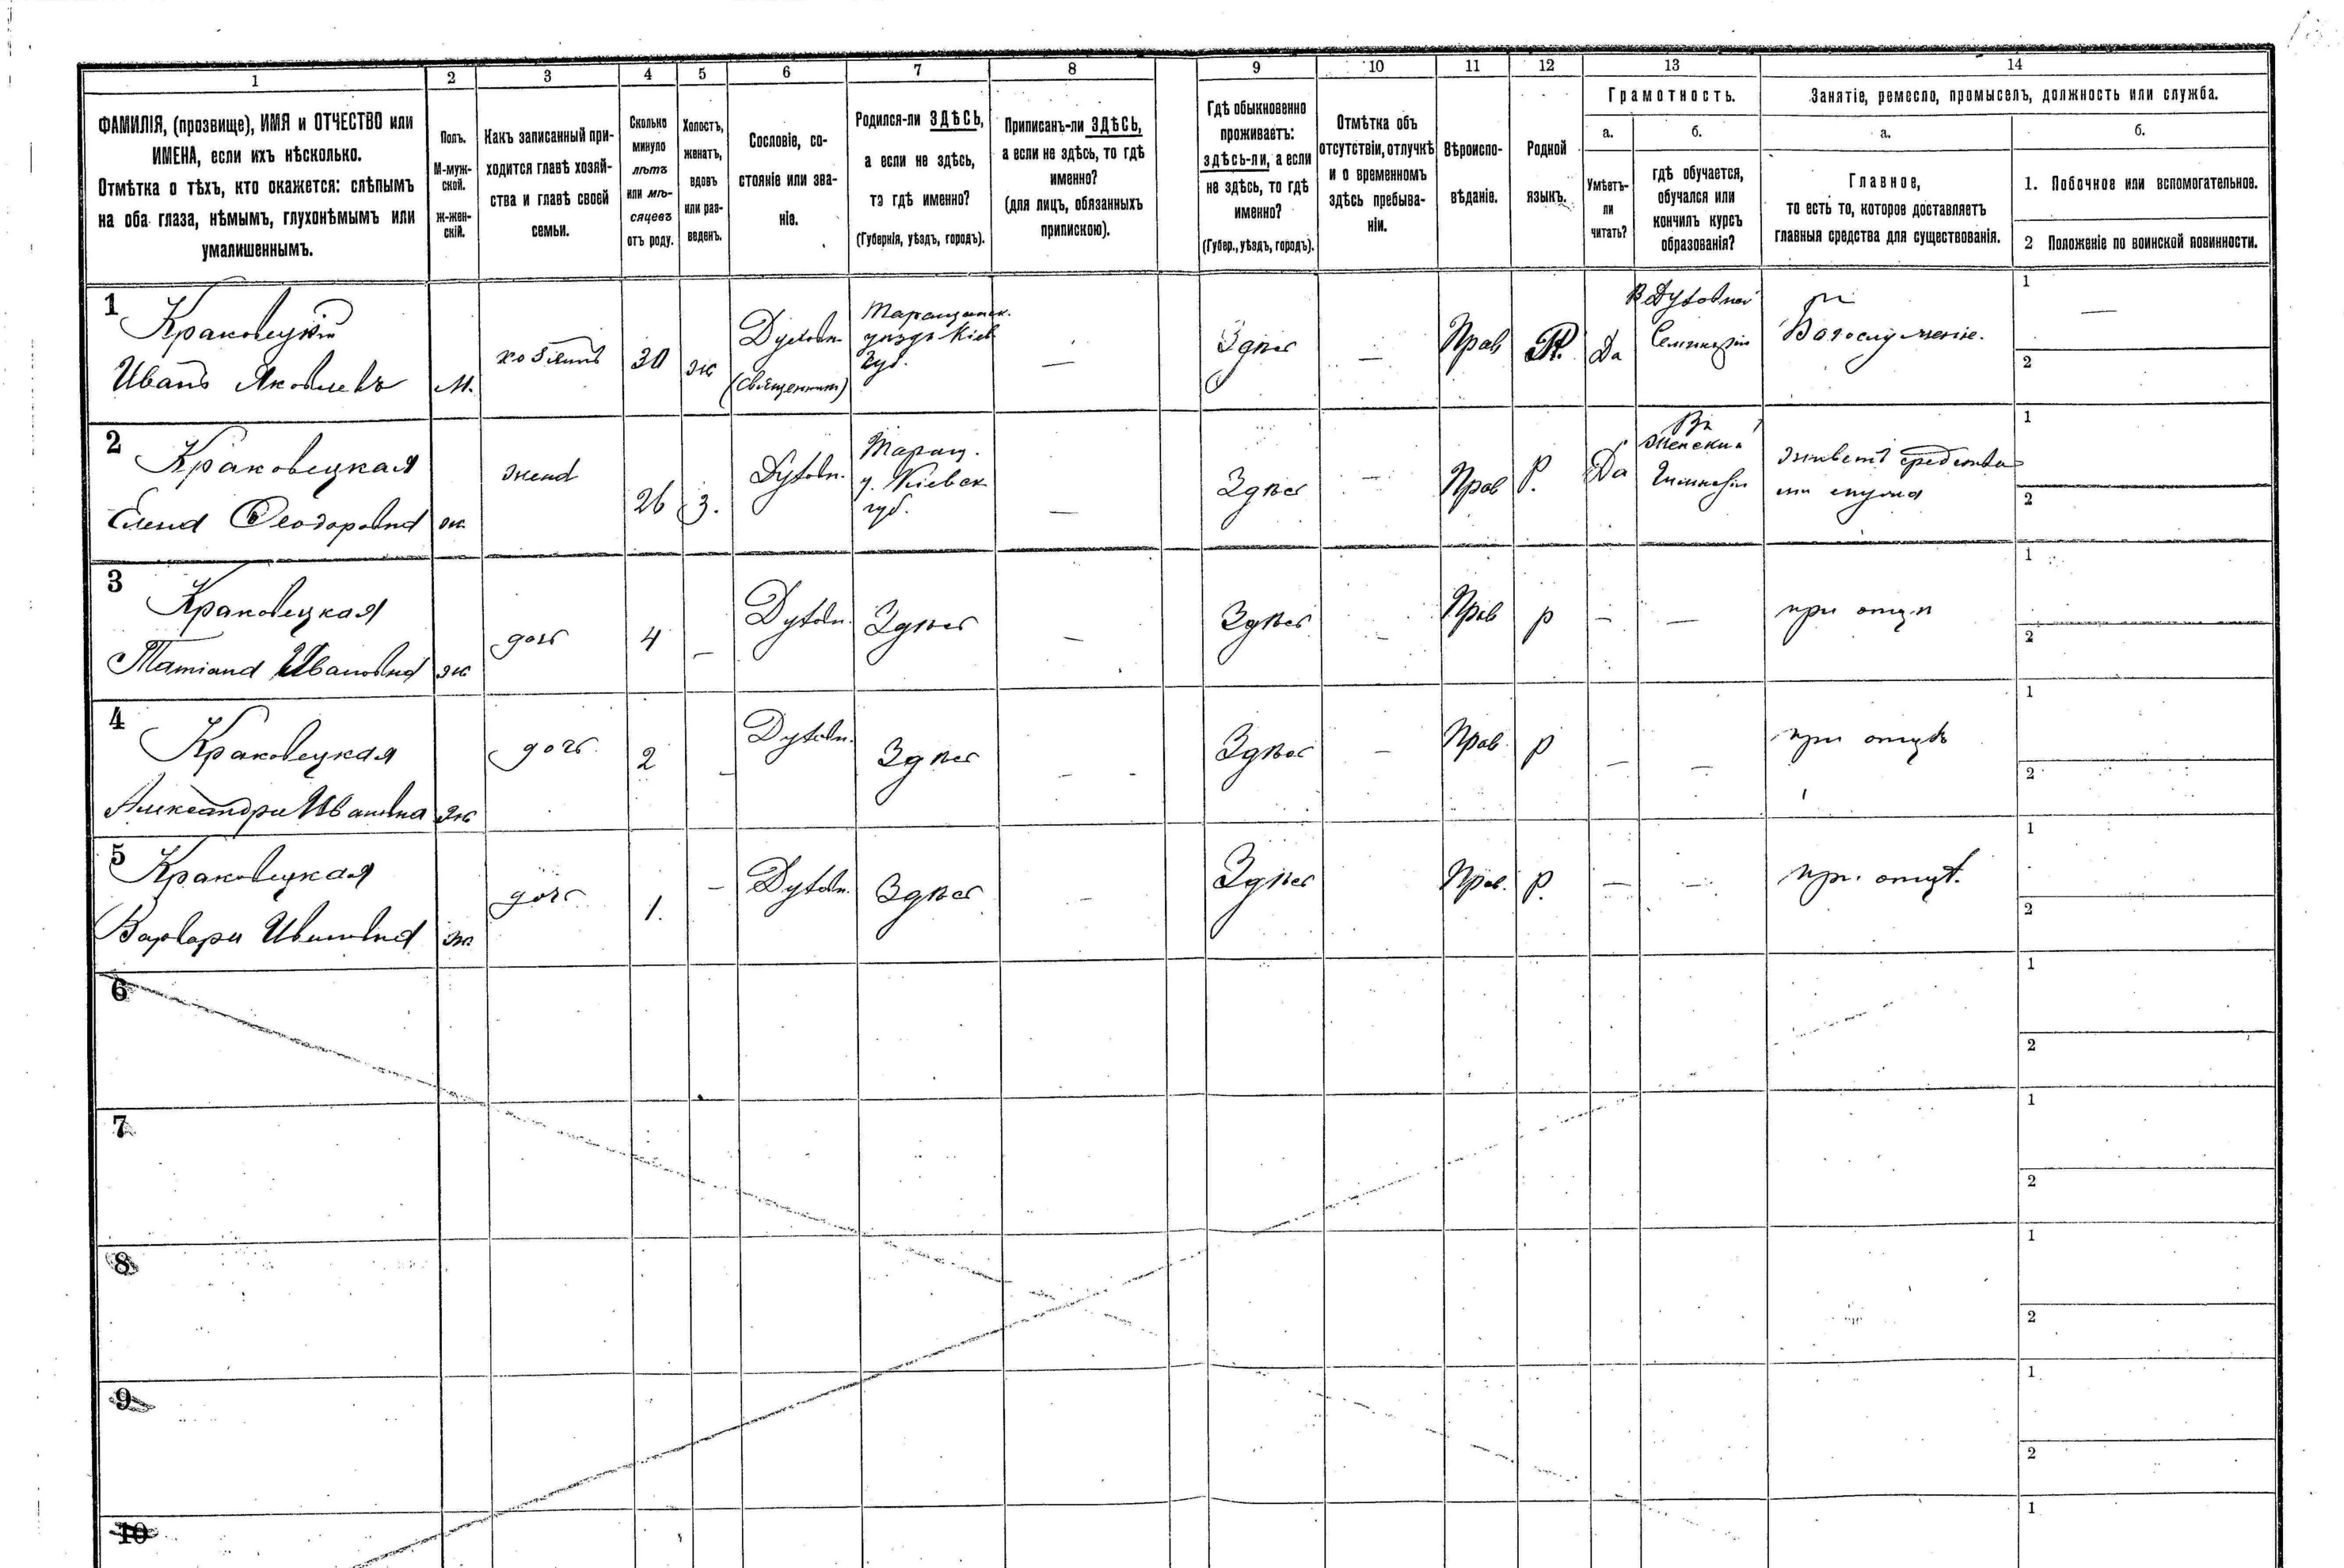 1 2 3 4 5 6 7 8 9 10 11 12 13 14
ФАМИЛІЯ, (прозвище), ИМЯ и ОТЧЕСТВО или
ИМЕНА, если ихъ нѣсколько.
Отмѣтка о тѣхъ, кто окажется: слѣпымъ
на оба глаза, нѣмымъ, глухонѣмымъ или
умалишеннымъ.
Полъ.
М-муж-
ской.
ж-жен-
скій.
Какъ записанный при-
ходится главѣ хозяй-
ства и главѣ своей
семьи.
Сколько
минуло
лѣтъ
или мѣ-
сяцевъ
отъ роду.
Холостъ,
женатъ,
вдовъ
или раз-
веденъ.
Сословіе, со-
стояніе или зва-
ніе.
Родился-ли ЗДѢСЬ,
а если не здѣсь,
то гдѣ именно?
(Губернія, уѣздъ, городъ).
Приписанъ-ли ЗДѢСЬ,
а если не здѣсь, то гдѣ
именно?
(для лицъ, обязанныхъ
припискою).
Гдѣ обыкновенно
проживаетъ:
здѣсь-ли, а если
не здѣсь, то гдѣ
именно?
(Губер., уѣздъ, городъ).
Отмѣтка объ
отсутствіи, отлучкѣ
и о временномъ
здѣсь пребыва-
ніи.
Вѣроиспо-
вѣданіе.
Родной
языкъ.
Грамотность.
а.
Умѣетъ-
ли
читать?
б.
гдѣ обучается,
обучался или
кончилъ курсъ
образованія?
Занятіе, ремесло, промыселъ, должность или служба.
а.
Главное,
то есть то, которое доставляетъ
главныя средства для существованія.
б.
1. Побочное или вспомогательное.
2 Положеніе по воинской повинности.
1
Краковецкій
Иванъ Яковлевъ
М.
хозяинъ
30
ж
Духовн.
(Священникъ)
Таращанск.
уѣздъ Кіев.
Губ.
—
Здѣсь
—
Прав
Р.
Да
В Духовной
Семинаріи
Богослуженіе.
1
—
2
2
Краковецкая
Елена Феодоровна
ж
жена
26
З.
Духовн.
Таращ.
у. Кіевск
губ.
—
Здѣсь
—
Прав
Р.
Да
Въ
Женской
Гимназіи
живетъ средства
ми мужа
1
2
3
Краковецкая
Татіана Ивановна
ж
дочь
4
—
Духовн.
Здѣсь
—
Здѣсь
—
Прав
р
—
—
при отцѣ
1
2
4
Краковецкая
Александра Ивановна
ж
дочь
2
—
Духовн.
Здѣсь
—
Здѣсь
—
Прав
р
—
—
при отцѣ
1
2
5
Краковецкая
Варвара Ивановна
ж
дочь
1.
—
Духовн.
Здѣсь
—
Здѣсь
Прав.
р.
—
—
при отцѣ.
1
2
6
1
2
7
1
2
8
1
2
9
1
2
10
1